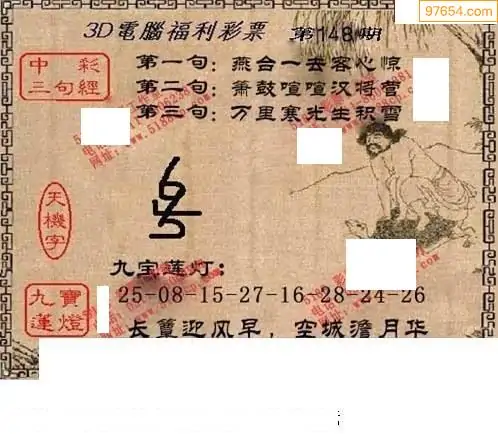 97654.com
3D電腦福利彩票 第148期
中彩
三句經
第一句：燕台一去客心惊
第二句：萧鼓喧喧汉将营
第三句：万里寒光生积雪
天機字
九宝莲灯：
九寶
蓮燈
25-08-15-27-16-28-24-26
长簟迎风早，空城澹月华